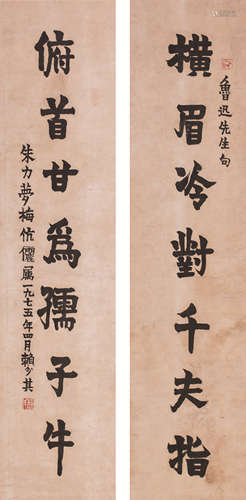 橫眉冷對千夫指
魯迅先生句
俯首甘為孺子牛
朱力夢梅伉儷屬一九七五年四月賴少其